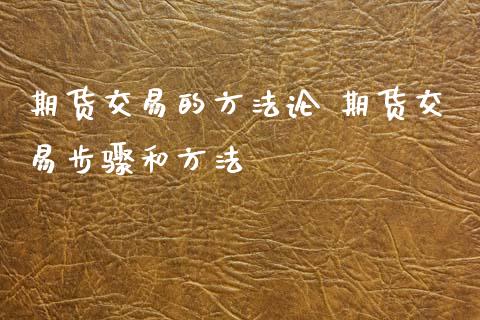 期货交易的方法论 期货交
易步骤和方法